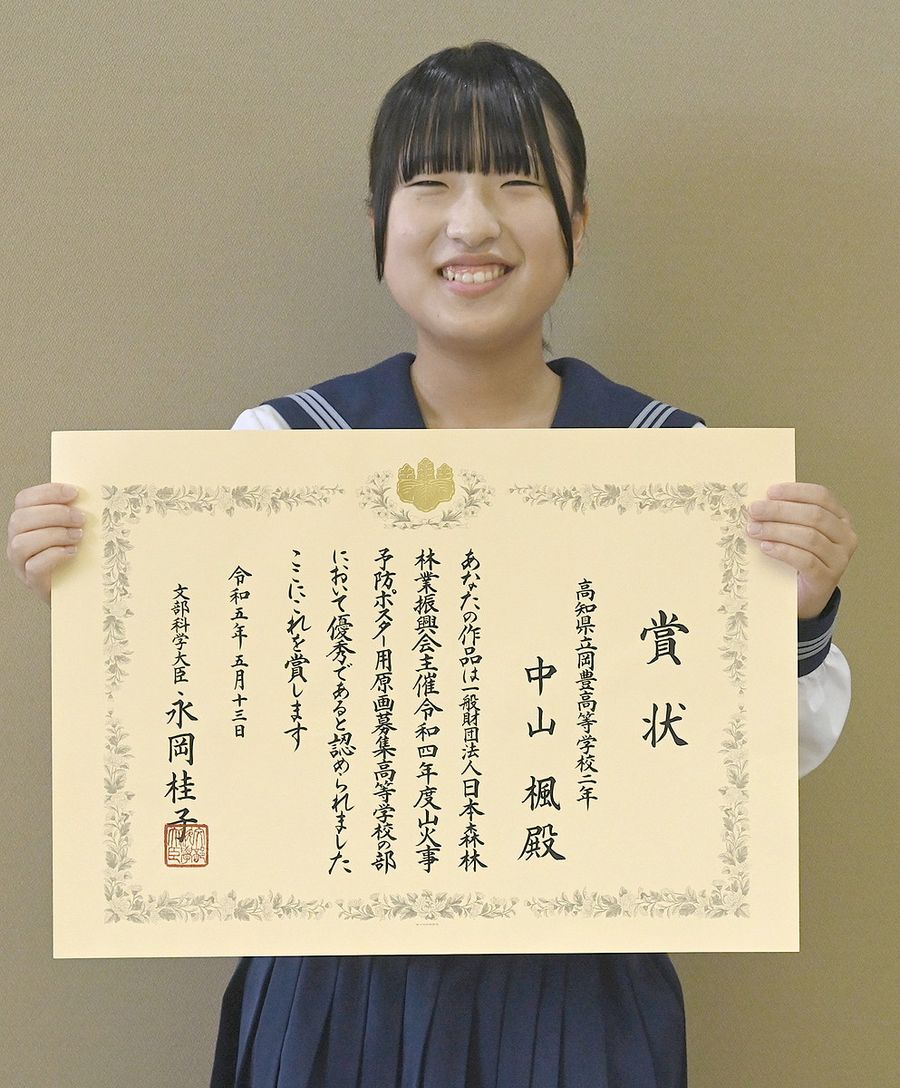 賞状
高知県立岡豊高等学校二年
中山 楓殿
あなたの作品は一般財団法人日本森林
林業振興会主催令和四年度山火事
予防ポスター用原画募集高等学校の部
において優秀であると認められました
ここにこれを賞します
令和五年五月十三日
文部科学大臣 永岡桂子